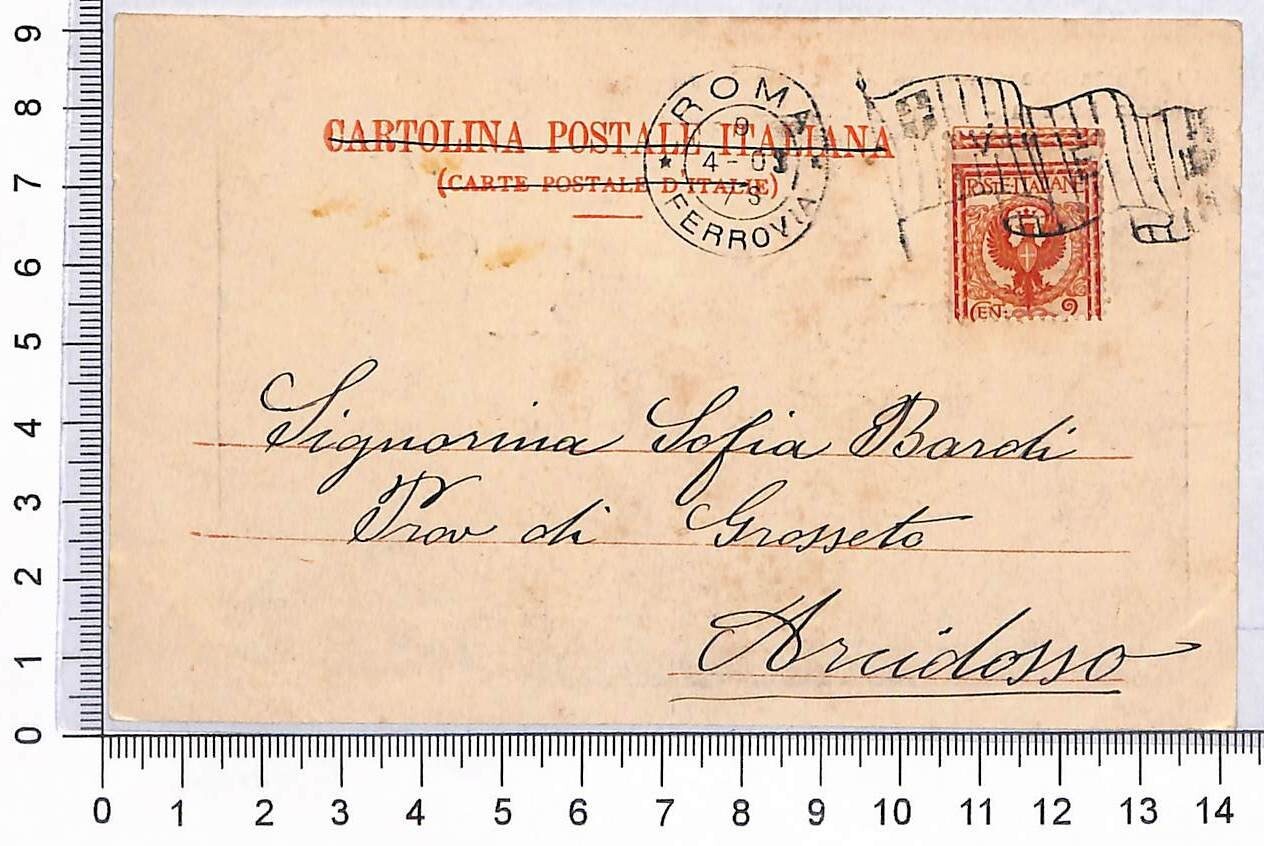 CARTOLINA POSTALE ITALIANA
(CARTE POSTALE D'ITALIE)
ROMA
9
4-03
7S
FERROVIA
POSTE ITALIANE
CEN:
Signorina Sofia Bardi
Prov di Grosseto
Arcidosso
9
8
7
6
5
4
3
2
1
0
0 1 2 3 4 5 6 7 8 9 10 11 12 13 14